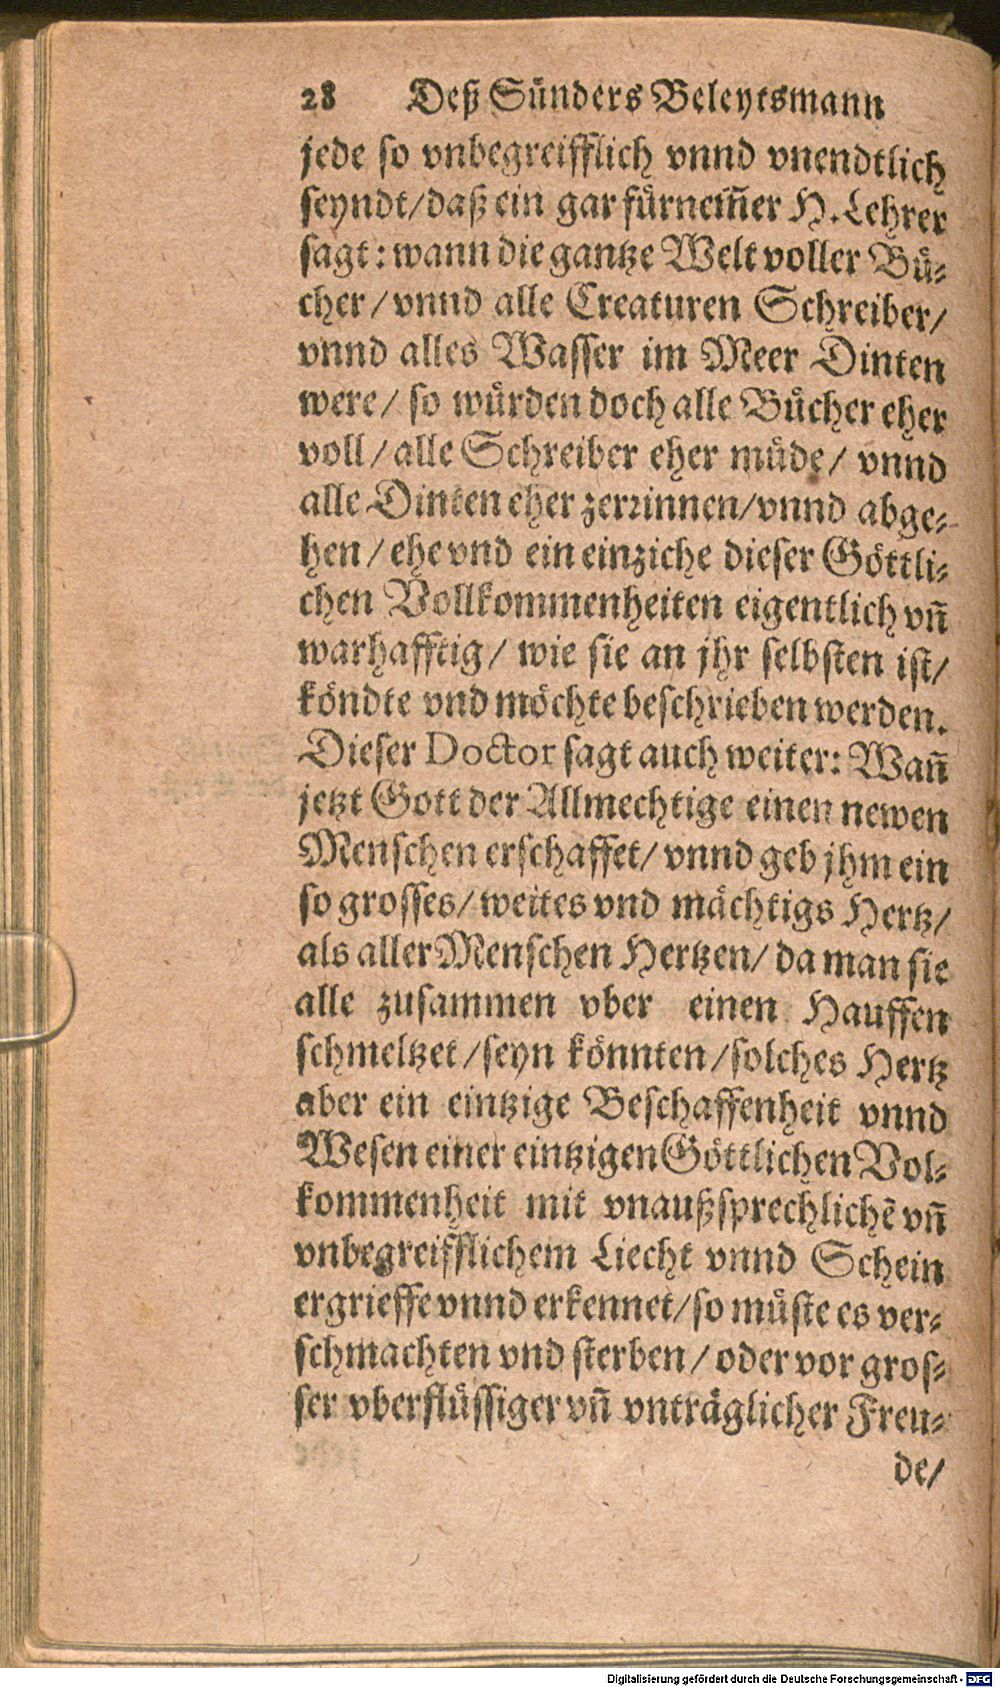 28 Deß Sünders Beleytsmann
jede so vnbegreifflich vnnd vnendtlich
seyndt/daß ein gar fürnem̃er H. Lehrer
sagt: wann die gantze Welt voller Bü-
cher/vnnd alle Creaturen Schreiber/
vnnd alles Wasser im Meer Dinten
were/ so würden doch alle Bücher eher
voll/alle Schreiber eher müde/ vnnd
alle Dinten eher zerrinnen/vnnd abge-
hen/ehe vnd ein einziche dieser Göttli-
chen Vollkommenheiten eigentlich vñ
warhafftig/ wie sie an jhr selbsten ist/
köndte vnd möchte beschrieben werden.
Dieser Doctor sagt auch weiter: Wañ
jetzt Gott der Allmechtige einen newen
Menschen erschaffet/ vnnd geb jhm ein
so grosses/weites vnd mächtigs Hertz/
als aller Menschen Hertzen/ da man sie
alle zusammen vber einen Hauffen
schmeltzet/seyn könnten/solches Hertz
aber ein eintzige Beschaffenheit vnnd
Wesen einer eintzigen Göttlichen Vol-
kommenheit mit vnaußsprechlichẽ vñ
vnbegreifflichem Liecht vnnd Schein
ergrieffe vnnd erkennet/so müste es ver-
schmachten vnd sterben/oder vor gros-
ser vberflüssiger vñ vnträglicher Freu-
de/
Digitalisierung gefördert durch die Deutsche Forschungsgemeinschaft - DFG